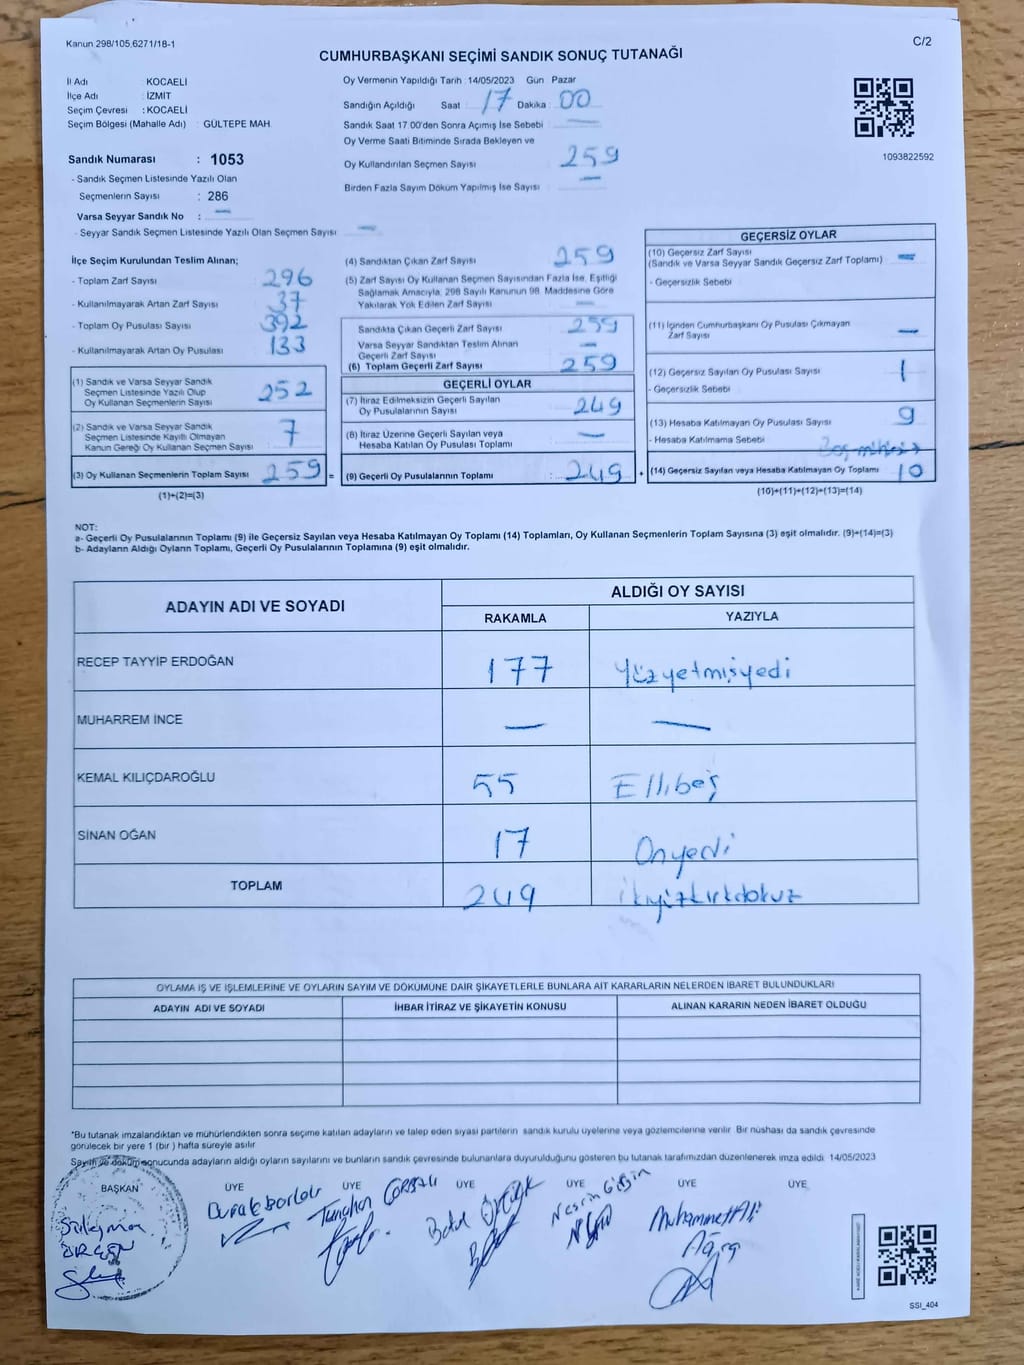 Kanun 298/105,6271/18-1
C/2
CUMHURBAŞKANI SEÇİMİ SANDIK SONUÇ TUTANAĞI
İl Adı KOCAELİ
İlçe Adı : İZMİT
Seçim Çevresi : KOCAELİ
Seçim Bölgesi (Mahalle Adı) : GÜLTEPE MAH.
Oy Vermenin Yapıldığı Tarih : 14/05/2023 Gün Pazar
Sandığın Açıldığı Saat : 17 Dakika : 00
Sandık Saat 17.00'den Sonra Açılmış İse Sebebi : —
Oy Verme Saati Bitiminde Sırada Bekleyen ve
Oy Kullandırılan Seçmen Sayısı 259
Birden Fazla Sayım Döküm Yapılmış İse Sayısı : —
1093822592
Sandık Numarası : 1053
- Sandık Seçmen Listesinde Yazılı Olan
Seçmenlerin Sayısı : 286
Varsa Seyyar Sandık No : —
- Seyyar Sandık Seçmen Listesinde Yazılı Olan Seçmen Sayısı —
İlçe Seçim Kurulundan Teslim Alınan;
- Toplam Zarf Sayısı 296
- Kullanılmayarak Artan Zarf Sayısı : 37
- Toplam Oy Pusulası Sayısı 392
- Kullanılmayarak Artan Oy Pusulası 133
(1) Sandık ve Varsa Seyyar Sandık
Seçmen Listesinde Yazılı Olup
Oy Kullanan Seçmenlerin Sayısı 252
(2) Sandık ve Varsa Seyyar Sandık
Seçmen Listesinde Kayıtlı Olmayan
Kanun Gereği Oy Kullanan Seçmen Sayısı 7
(3) Oy Kullanan Seçmenlerin Toplam Sayısı 259 =
(1)+(2)=(3)
(4) Sandıktan Çıkan Zarf Sayısı 259
(5) Zarf Sayısı Oy Kullanan Seçmen Sayısından Fazla İse, Eşitliği
Sağlamak Amacıyla, 298 Sayılı Kanunun 98. Maddesine Göre
Yakılarak Yok Edilen Zarf Sayısı —
Sandıkta Çıkan Geçerli Zarf Sayısı 259
Varsa Seyyar Sandıktan Teslim Alınan
Geçerli Zarf Sayısı —
(6) Toplam Geçerli Zarf Sayısı 259
GEÇERLİ OYLAR
(7) İtiraz Edilmeksizin Geçerli Sayılan
Oy Pusulalarının Sayısı 249
(8) İtiraz Üzerine Geçerli Sayılan veya
Hesaba Katılan Oy Pusulası Toplamı —
(9) Geçerli Oy Pusulalarının Toplamı : 249 +
GEÇERSİZ OYLAR
(10) Geçersiz Zarf Sayısı
(Sandık ve Varsa Seyyar Sandık Geçersiz Zarf Toplamı) —
- Geçersizlik Sebebi
(11) İçinden Cumhurbaşkanı Oy Pusulası Çıkmayan
Zarf Sayısı —
(12) Geçersiz Sayılan Oy Pusulası Sayısı 1
- Geçersizlik Sebebi
(13) Hesaba Katılmayan Oy Pusulası Sayısı 9
- Hesaba Katılmama Sebebi
(14) Geçersiz Sayılan veya Hesaba Katılmayan Oy Toplamı 10
(10)+(11)+(12)+(13)=(14)
NOT:
a- Geçerli Oy Pusulalarının Toplamı (9) ile Geçersiz Sayılan veya Hesaba Katılmayan Oy Toplamı (14) Toplamları, Oy Kullanan Seçmenlerin Toplam Sayısına (3) eşit olmalıdır. (9)+(14)=(3)
b- Adayların Aldığı Oyların Toplamı, Geçerli Oy Pusulalarının Toplamına (9) eşit olmalıdır.
ADAYIN ADI VE SOYADI
ALDIĞI OY SAYISI
RAKAMLA YAZIYLA
RECEP TAYYİP ERDOĞAN 177 Yüzyetmişyedi
MUHARREM İNCE — —
KEMAL KILIÇDAROĞLU 55 Ellibeş
SİNAN OĞAN 17 Onyedi
TOPLAM 249 ikiyüzkırkdokuz
OYLAMA İŞ VE İŞLEMLERİNE VE OYLARIN SAYIM VE DÖKÜMÜNE DAİR ŞİKAYETLERLE BUNLARA AİT KARARLARIN NELERDEN İBARET BULUNDUKLARI
ADAYIN ADI VE SOYADI İHBAR İTİRAZ VE ŞİKAYETİN KONUSU ALINAN KARARIN NEDEN İBARET OLDUĞU
*Bu tutanak imzalandıktan ve mühürlendikten sonra seçime katılan adayların ve talep eden siyasi partilerin sandık kurulu üyelerine veya gözlemcilerine verilir. Bir nüshası da sandık çevresinde
görülecek bir yere 1 (bir ) hafta süreyle asılır.
Sayım ve döküm sonucunda adayların aldığı oyların sayılarını ve bunların sandık çevresinde bulunanlara duyurulduğunu gösteren bu tutanak tarafımızdan düzenlenerek imza edildi. 14/05/2023
BAŞKAN ÜYE ÜYE ÜYE ÜYE ÜYE ÜYE
Süleyman
Muhammet Ali
SSI_404